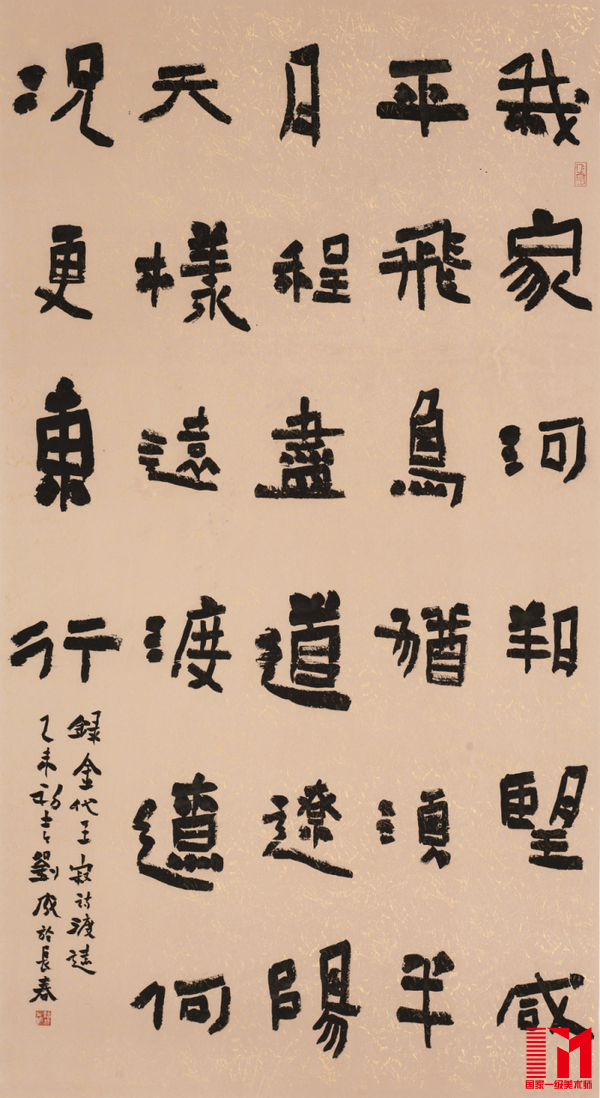 我家河朔望咸
平飛鳥猶須半
月程盡道遼陽
天樣遠渡遼何
况更東行
錄金代王寂詩渡遼
乙未劉成於長春
国家一级美术师